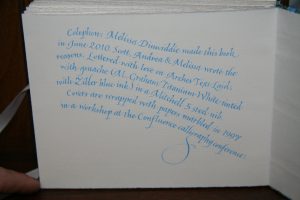 Colophon: Melissa Dinwiddie made this book
in June 2010. Scott, Andrea & Melissa wrote the
reasons. Lettered with love on Arches Text Laid,
with gouache (M. Graham Titanium White tinted
with Ziller blue ink) in a Mitchell 5 steel nib.
Covers are wrapped with papers marbled in 1997
in a workshop at the Confluence calligraphy conference.